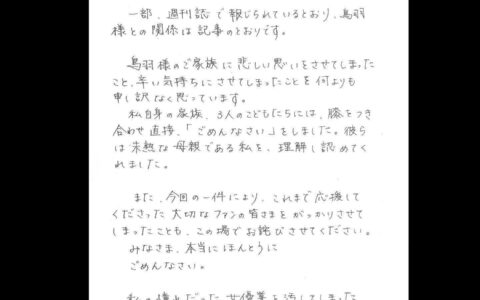 一部、週刊誌で報じられているとおり、鳥羽
様との関係は記事のとおりです。
鳥羽様のご家族に悲しい思いをさせてしまった
こと、辛い気持ちにさせてしまったことを何よりも
申し訳なく思っています。
私自身の家族、3人のこどもたちには、膝をつき
合わせ直接、「ごめんなさい」をしました。彼ら
は未熟な母親である私を、理解し認めてく
れました。
また、今回の一件により、これまで応援して
くださった大切なファンの皆さまをがっかりさせて
しまったことも、この場でお詫びさせてください。
みなさま、本当にほんとうに
ごめんなさい。
私の憧れだった女優業を汚してしまった